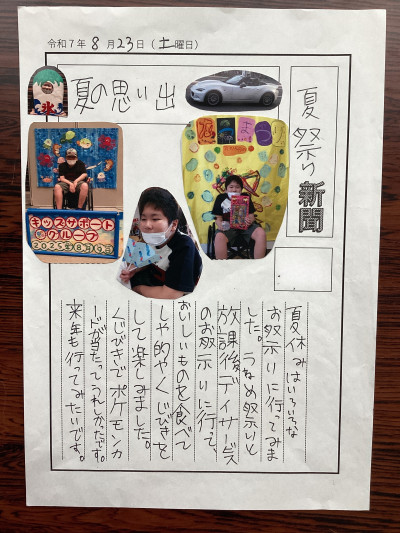 令和7年8月23日(土曜日)
夏祭り新聞
夏の思い出
氷
なつまつり
キッズサポート
グループ
2025年8月9日
夏休みはいろいろな
お祭りに行ってみま
した。うねめ祭りと
放課後デイサービス
のお祭りに行って、
おいしいものを食べて
しゃ的やくじびきを
して楽しみました。
くじびきでポケモンカ
ードが当たってうれしかったです。
来年も行ってみたいです。